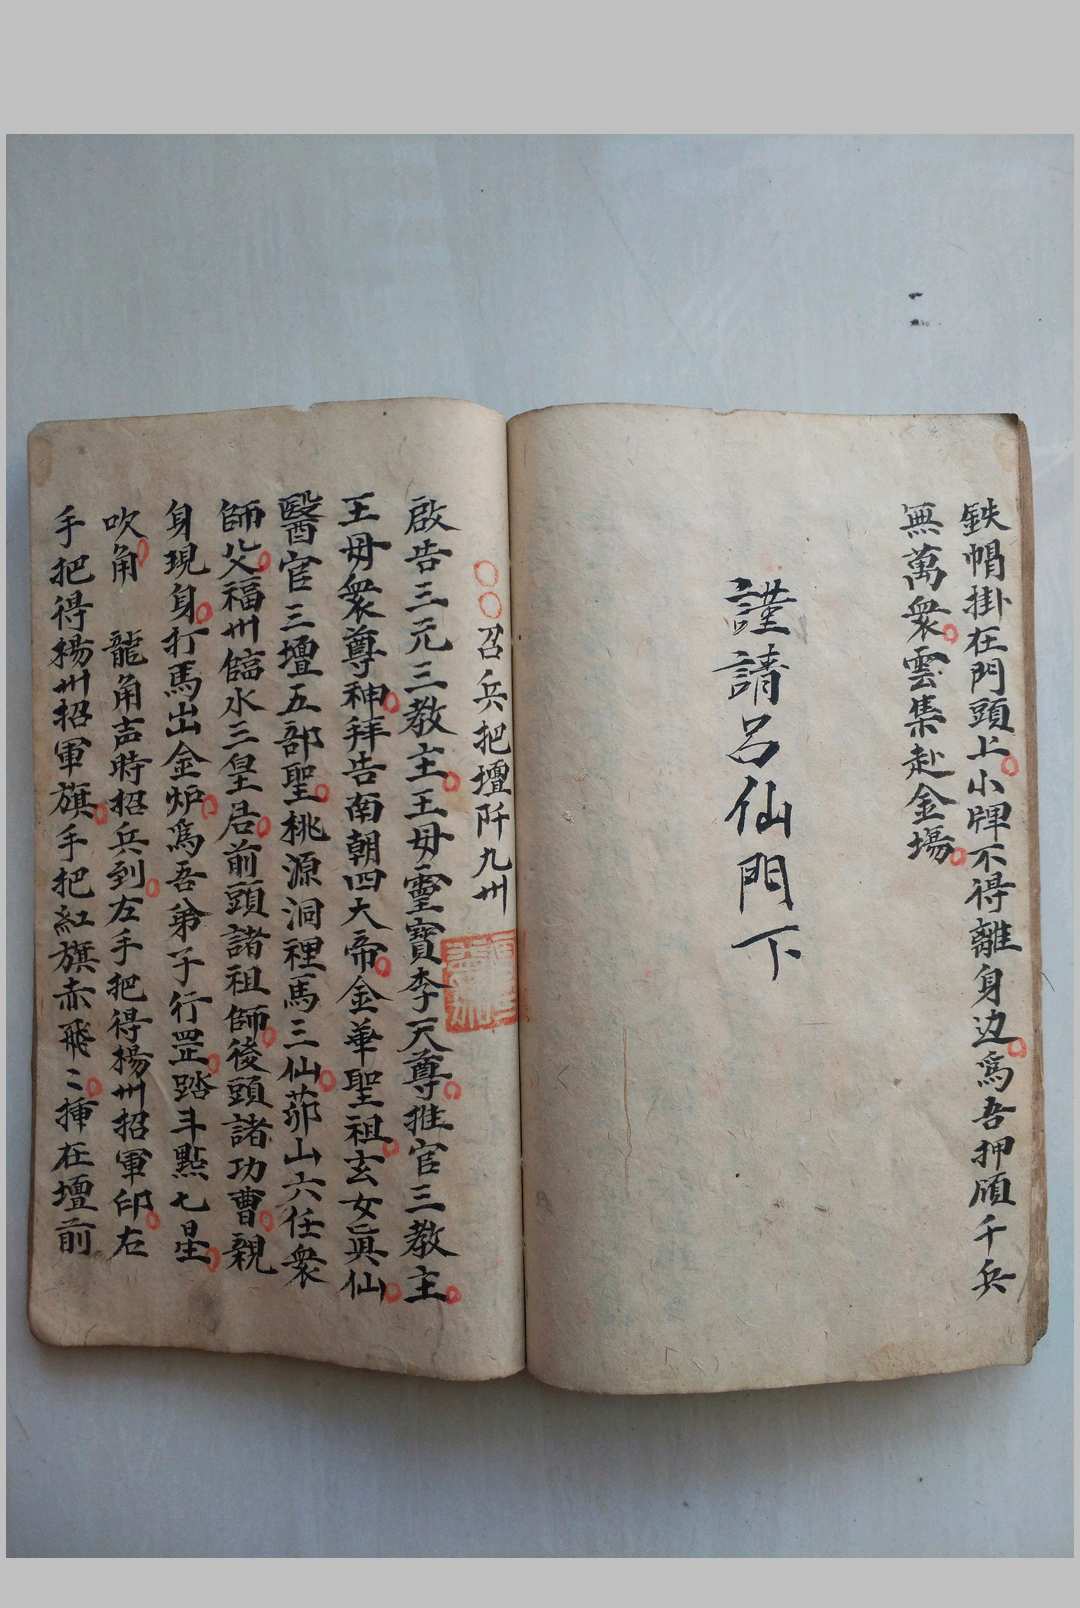 鉄帽掛在門頭上小牌不得離身边為吾押順千兵
無萬衆雲集赴金場
謹請呂仙門下
召兵把壇阡九州
啟告三元三教主王母靈寶李天尊推官三教主
王母衆尊神拜告南朝四大帝金華聖祖玄女真仙
醫官三壇五部聖桃源洞裡馬三仙茆山六任衆
師父福州臨水三皇君前頭諸祖師後頭諸功曹親
身現身打馬出金炉為吾弟子行罡踏斗點七星
吹角 龍角声時招兵到左手把得楊州招軍印右
手把得楊州招軍旗手把紅旗赤飛〻揷在壇前